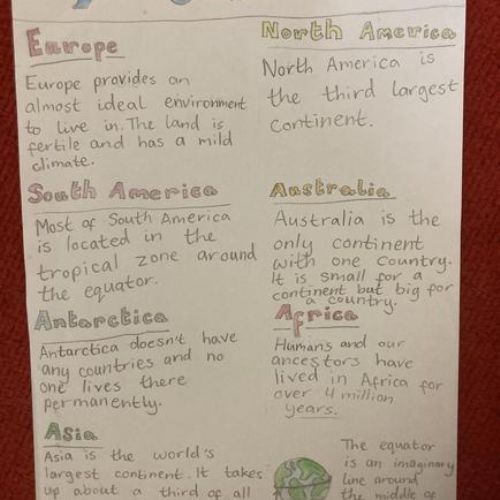 Europe
Europe provides an
almost ideal environment
to live in. The land is
fertile and has a mild
climate.
North America
North America is
the third largest
continent.
South America
Most of South America
is located in the
tropical zone around
the equator.
Australia
Australia is the
only continent
with one country.
It is small for a
continent but big for
a country.
Antarctica
Antarctica doesn't have
any countries and no
one lives there
permanently.
Africa
Humans and our
ancestors have
lived in Africa for
over 4 million
years.
Asia
Asia is the world's
largest continent. It takes
up about a third of all
The equator
is an imaginary
line around
the middle of